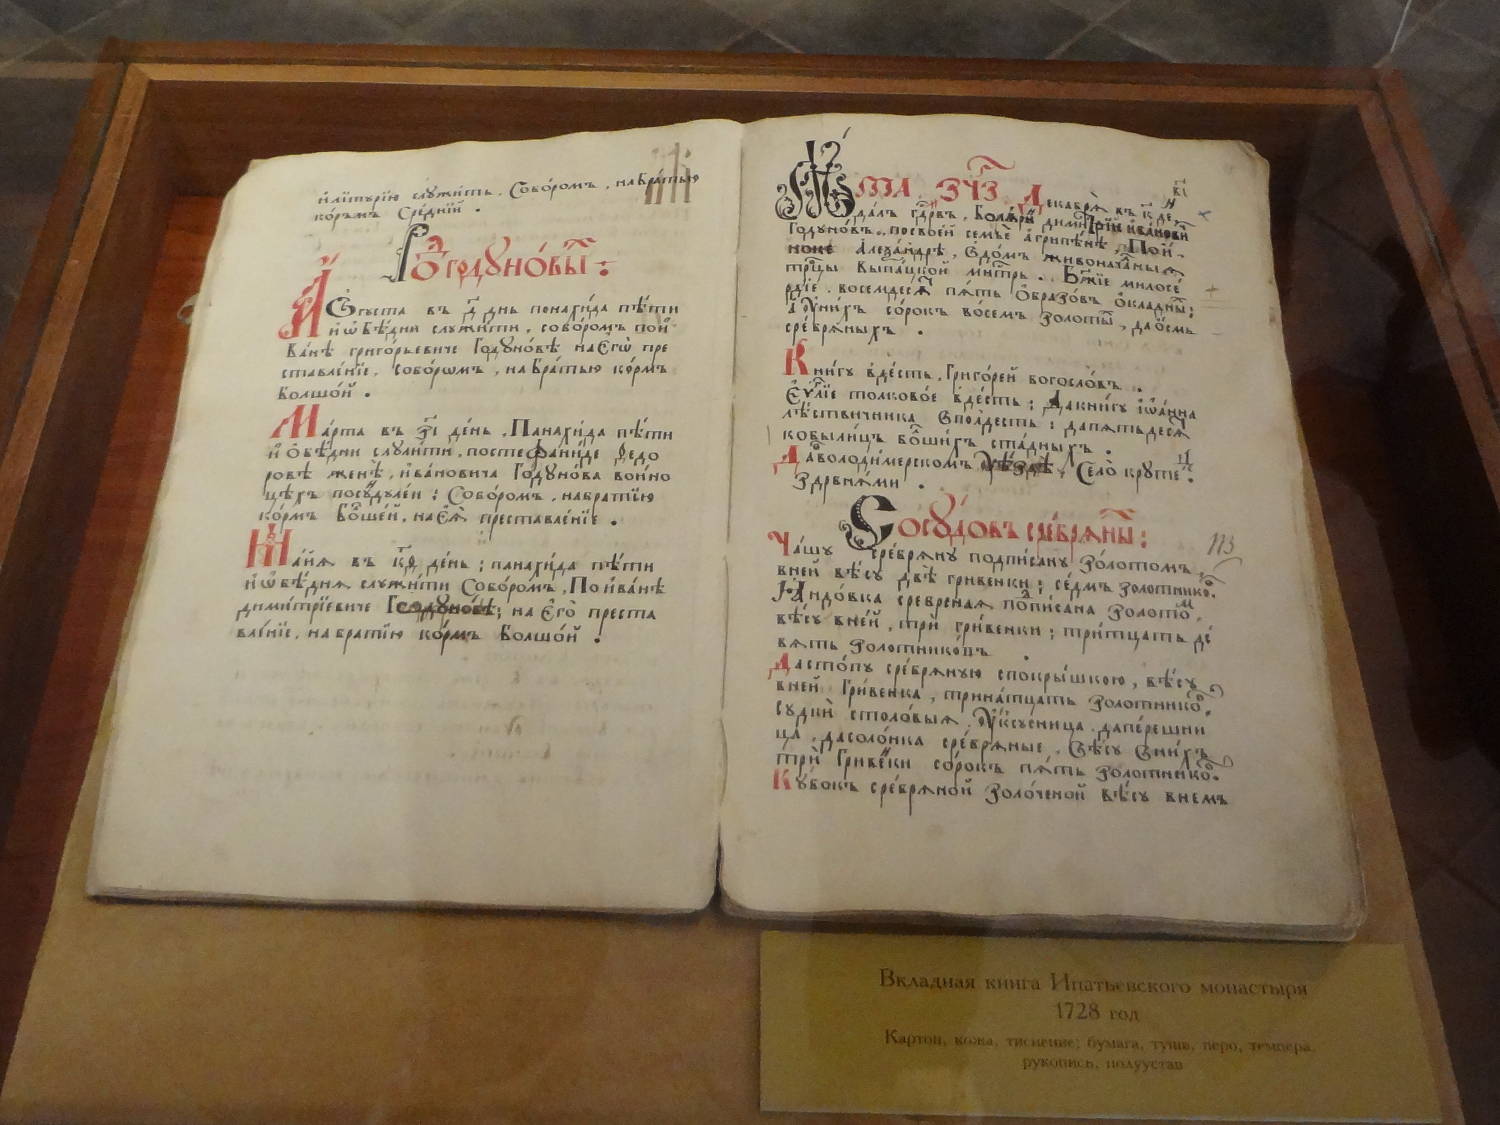 и литꙋргїю слꙋжить. Собо́ромъ, на Бра́тью
ко́рмъ Сре́днїй.
Годꙋно́вы:
А҆́вгꙋста въ д҃ днь понахи́да пѣ́ти
и҆ ѡ҆бѣ́дни слꙋжи́ти, собо́ромъ по И҆
Ва́нѣ григо́рьевиче Годꙋно́вѣ на Е҆гѡ̀ пре
ставле́нїе, собо́рѡмъ, на бра́тью ко́рмъ
Болшо́й.
Ма́рта въ з҃і де́нь, Панахи́да пѣ́ти
и҆ Ѻ҆бѣ́дни слꙋжи́ти, по стефани́де федо
ровѣ женѐ, и҆ва́новича Годꙋно́ва
Собо́ромъ, на братїю
ко́рмъ на Е҆ѧ̀ преставле́нїе.
Ма́йѧ въ де́нь; панахи́да пѣ́ти
и҆ ѡ҆бѣ́дни слꙋжи́ти Собо́ромъ, По и҆ва́нѣ
дими́трїевиче Годꙋно́вѣ; на Е҆го̀ преста
вле́нїе, на братїю ко́рмъ Болшо́й.
Лѣ́та ЗЧ҃З Декабрѧ̀ въ к҃ де,
да́лъ Боѧ́ринъ дими́трїй и҆ва́нови
Годꙋно́въ, по свое́й семьѐ агрипѣ́нѣ, По и҆
ноке Алеѯа́ндрѣ, в до́мъ живонача́лныѧ
трⷪ҇цы Бж҃їе милосе́
рдїе. восемдесѧ́тъ пѧ́ть Ѻ҆бразо́въ ѡ҆кла́дны:
а҆ ꙋ҆ ни́хъ со́рокъ во́семъ золоты́, да о́смь
сре́брѧныхъ.
Кни́гꙋ в де́сть, Григо́рей богосло́въ.
Е҆ѵⷢ҇лїе толково́е в де́сть: Да кни́гꙋ і҆ѡа́нна
лѣ́ствичника в полде́сть: да пѧтьдесѧ́
кобыли́цъ ста́дныхъ.
Да в володи́мерскомъ ꙋ҆ѣ́здѣ, Село̀ крꙋте́ц
з дрвнѧ́ми.
Сосꙋ́довъ сре́брѧны:
113
Ча́шꙋ сре́брѧнꙋ подпи́санꙋ зо́лотомъ,
в не́й вѣ́сꙋ двѣ̀ гри́венки; се́дмъ золотнико́.
Ꙗ҆ндо́вка сре́бреная по́пи́сана зо́лото,
вѣ́сꙋ в не́й, трѝ гри́венки; три́тцать де́
вѧть золотнико́въ.
Да сто́пꙋ сре́брѧнꙋю с покры́шкою, вѣ́сꙋ
в не́й Гри́венка, трина́тцать золотнико́.
сꙋ́дки столо́выѧ. Ꙋ҆́ксꙋсница да пе́решни
ца, да соло́нка сре́брѧные, Вѣ́сꙋ в ни́хъ
трѝ Гриве́нки со́рокъ пѧ́ть золотнико́.
Кꙋ́бокъ сре́брѧной золо́ченой вѣ́сꙋ в немъ
Вкладная книга Ипатьевского монастыря
1728 год
Картон, кожа, тиснение; бумага, тушь, перо, темпера,
рукопись, полуустав